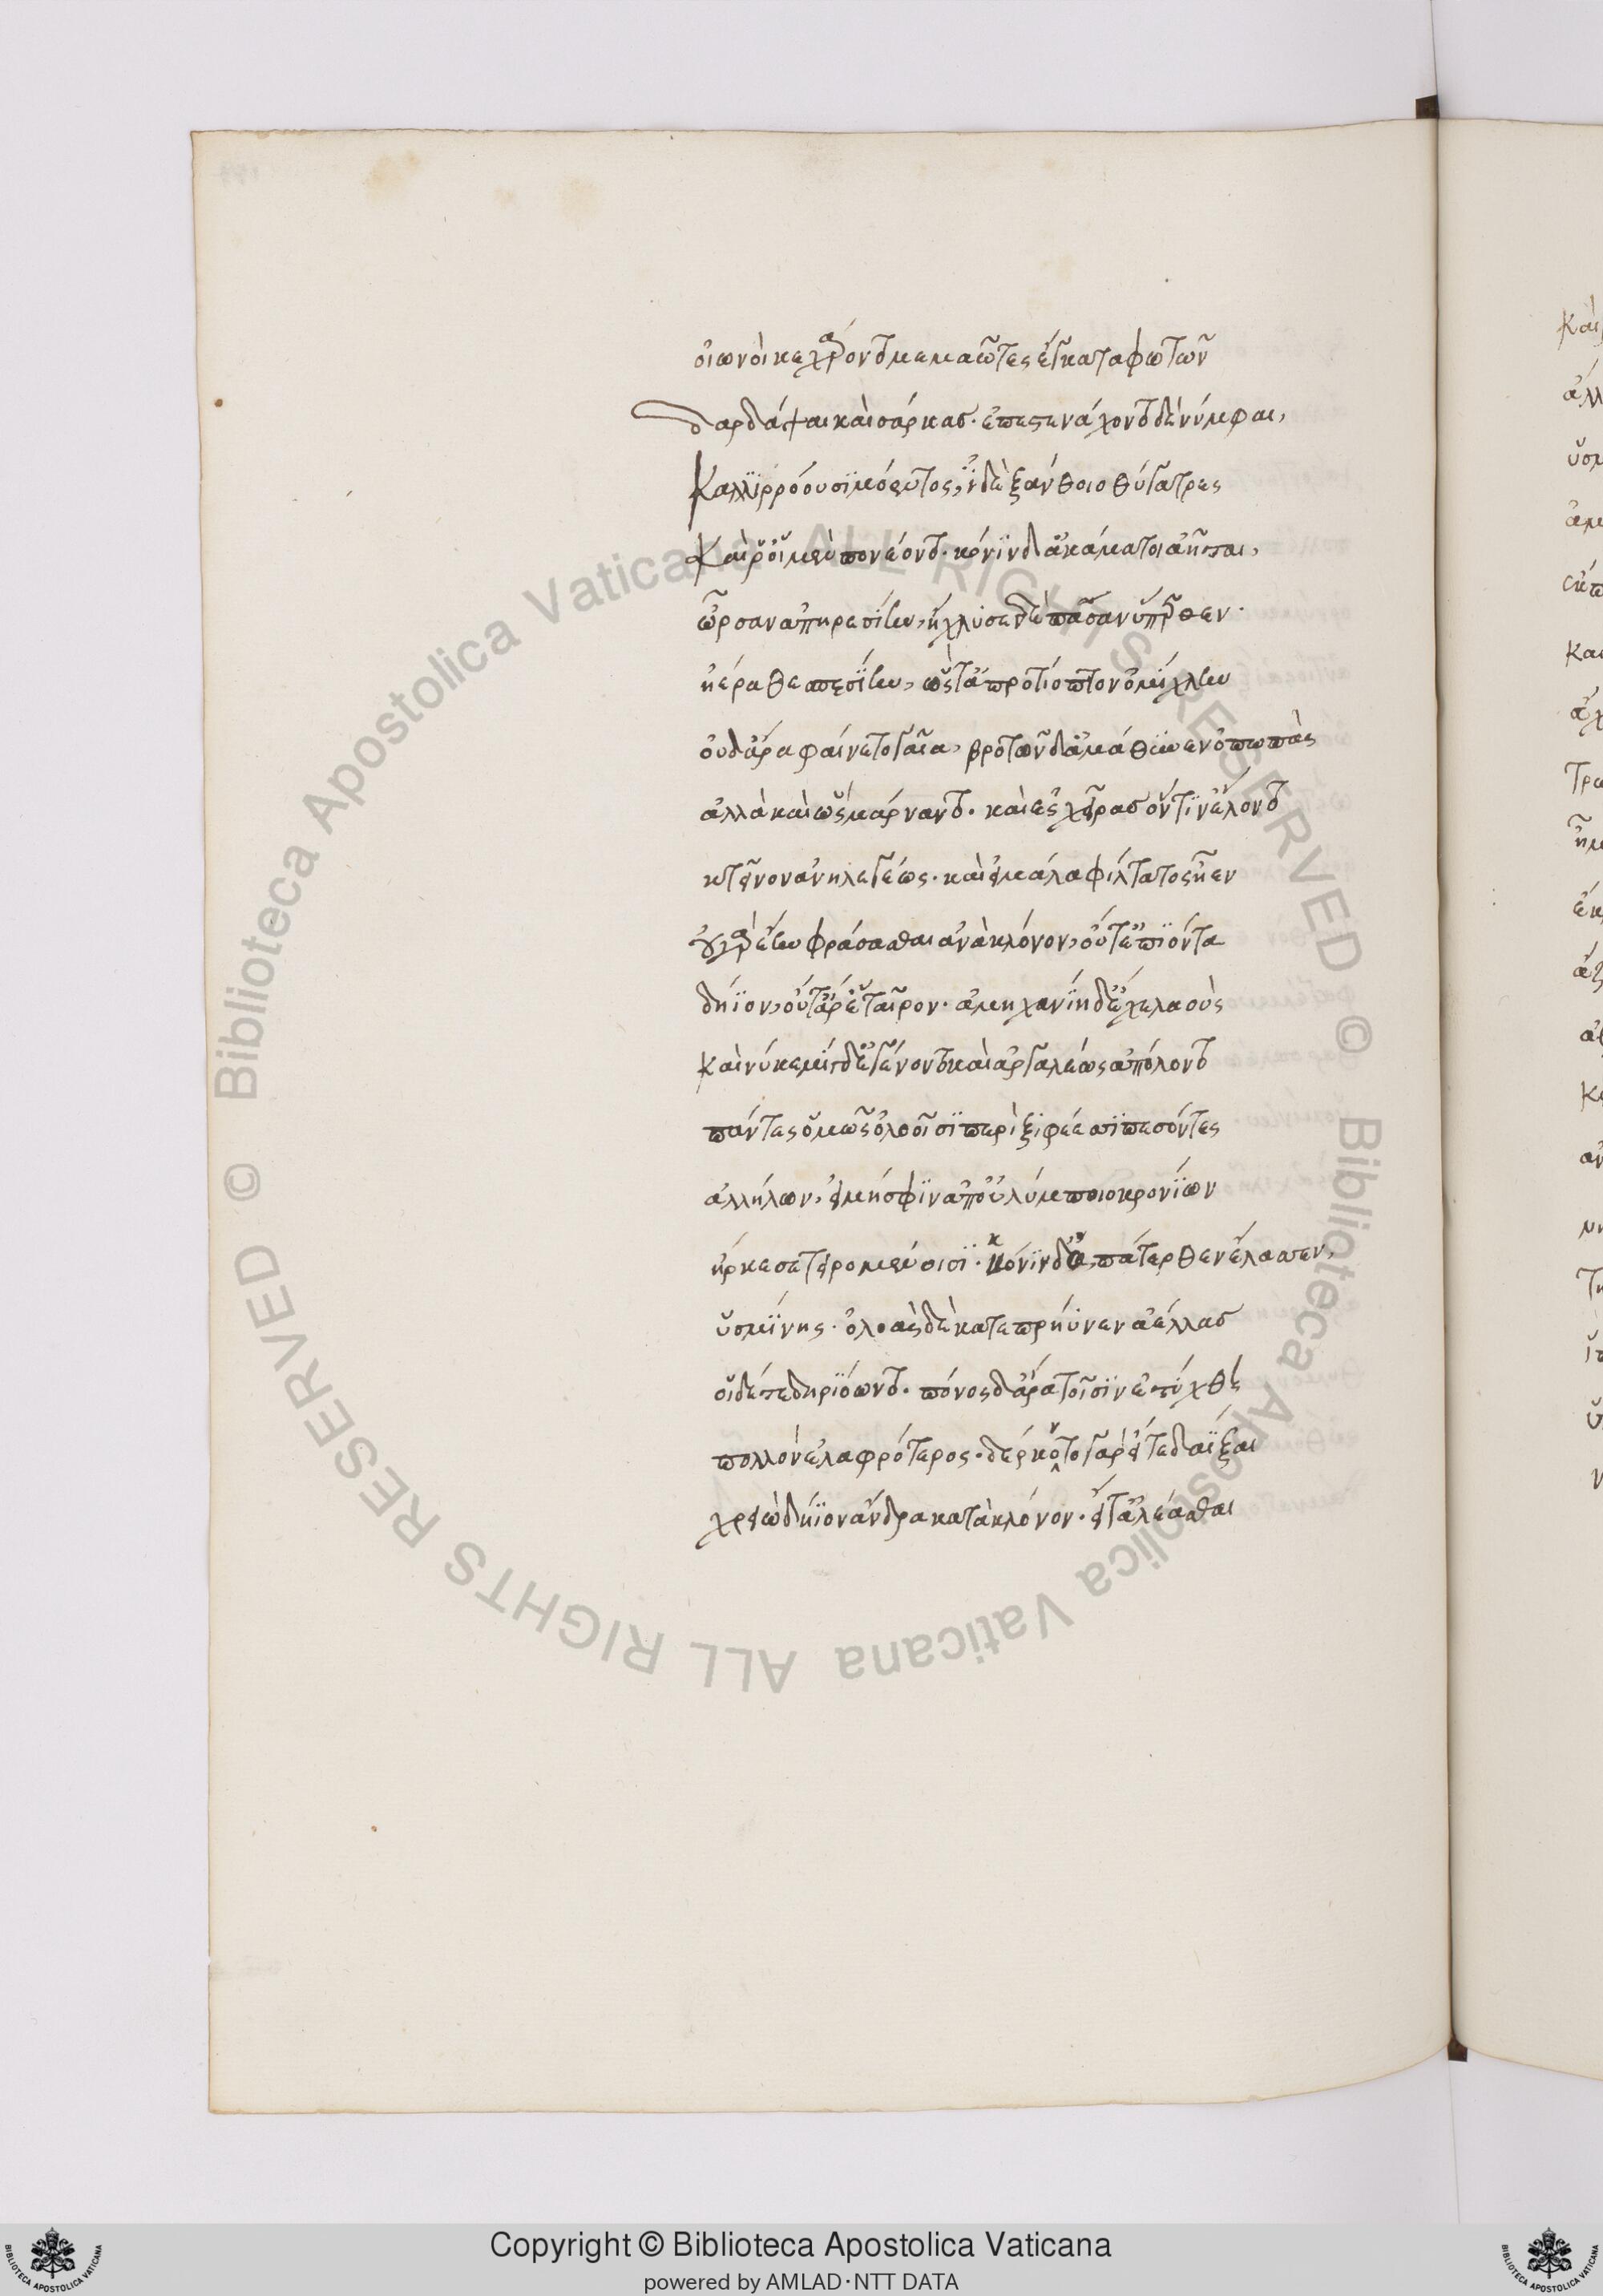 οἰωνοὶ κεχάροντο μεμαῶτες ἔγκατα φωτῶν
δαρδάψαι καὶ σάρκας· ἐπεστενάχοντο δὲ νύμφαι,
Καλλιρρόου σιμόεντος, ἠδὲ ξάνθοιο θύγατρες
Καὶ ῥ' οἳ μὲν πονέοντο· κόνιν δ' ἀκάματοι ἀῆται,
ὦρσαν ἀπηρεσίην, ἤχλυσε δὲ πᾶσαν ὕπερθεν·
ἠέρα θεσπεσίην, ὥς τ' ἀπροτίοπτον ὀμίχλην
οὐδ' ἄρα φαίνετο γαῖα, βροτῶν δ' ἀμάθυνεν ὀπωπὰς
ἀλλὰ καὶ ὣς μάρναντο· καὶ ἐς χεῖρας ὅντιν' ἕλοντο
κτεῖνον ἀνηλεγέως· καὶ εἰ μάλα φίλτατος ἦεν
οὐ γὰρ ἔην φράσασθαι ἀνὰ κλόνον, οὔτ' ἐπιόντα
δήϊον, οὔτ' ἄρ' ἑταῖρον· ἀμηχανίη δ' ἔχε λαοὺς
Καί νύ κε μίγδ' ἐγένοντο καὶ ἀργαλέως ἀπόλοντο
πάντες ὁμῶς ὀλοοῖσι περὶ ξιφέεσσι πεσόντες
ἀλλήλων, εἰ μή σφιν ἀπ' οὐλύμποιο κρονίων
ἤρκεσε τειρομένοισι· κόνιν δ' ἀπάτερθεν ἔλασσεν,
ὑσμίνης· ὀλοὰς δὲ κατεπρήϋνεν ἀέλλας
οἱ δ' ἔτι δηριόωντο· πόνος δ' ἄρα τοῖσιν ἐτύχθη
πολλὸν ἐλαφρότερος· δέρκοντο γὰρ εἴτε δαΐξαι
χρειὼ δήϊον ἄνδρα κατὰ κλόνον· εἴτ' ἀλέασθαι
Copyright © Biblioteca Apostolica Vaticana
powered by AMLAD·NTT DATA